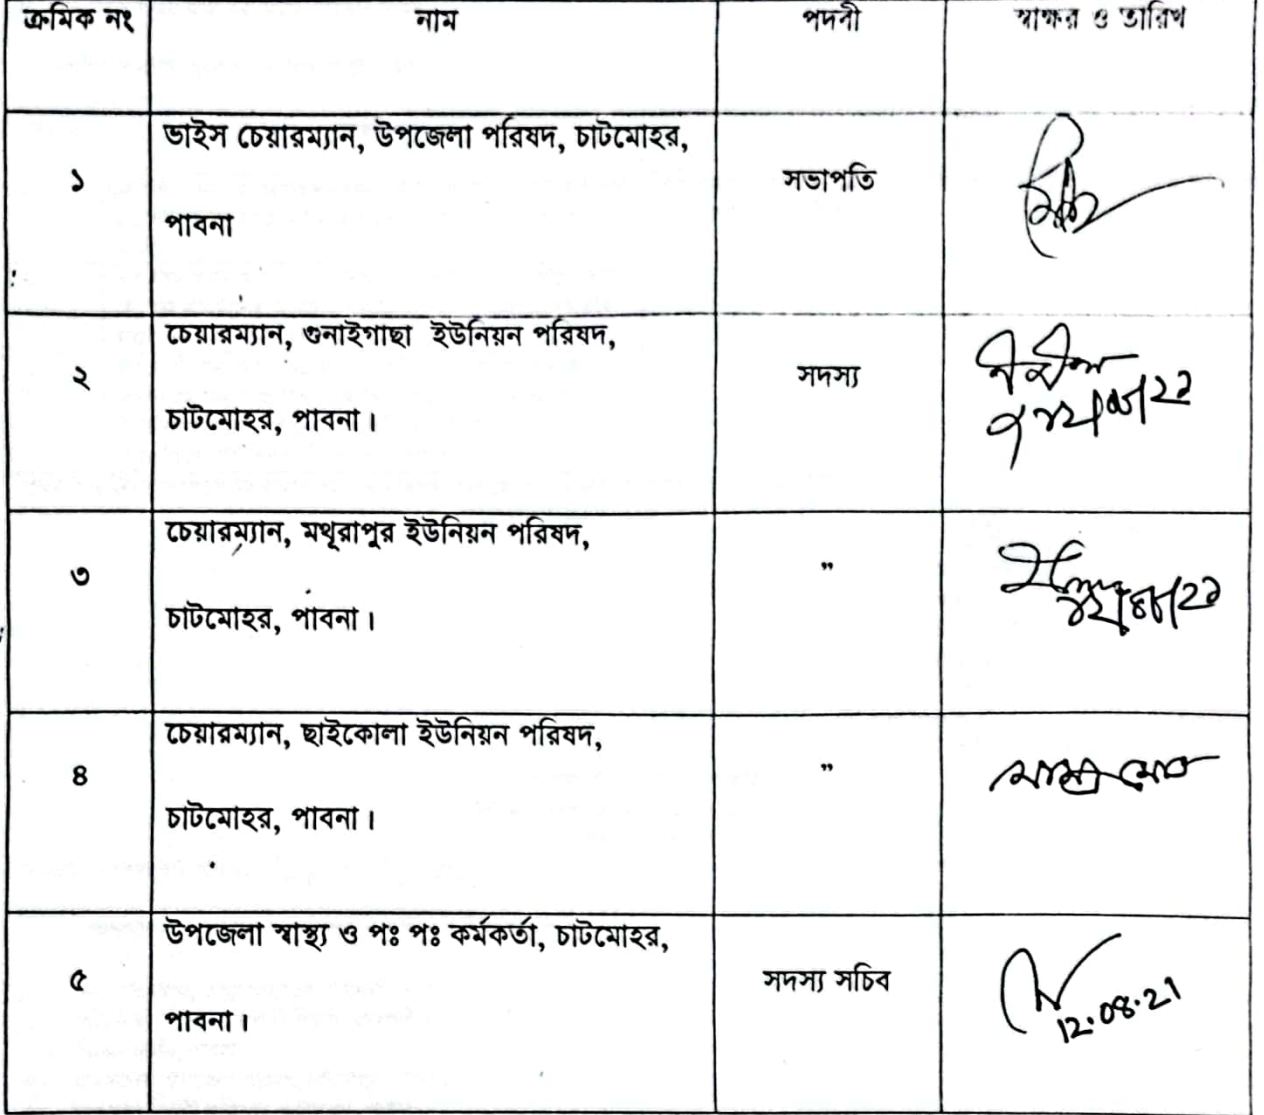 ক্রমিক নং নাম পদবী স্বাক্ষর ও তারিখ
ভাইস চেয়ারম্যান, উপজেলা পরিষদ, চাটমোহর,
১ সভাপতি
পাবনা
চেয়ারম্যান, গুনাইগাছা ইউনিয়ন পরিষদ,
২ সদস্য
চাটমোহর, পাবনা।
চেয়ারম্যান, মথুরাপুর ইউনিয়ন পরিষদ,
৩ ”
চাটমোহর, পাবনা।
চেয়ারম্যান, ছাইকোলা ইউনিয়ন পরিষদ,
৪ ”
চাটমোহর, পাবনা।
উপজেলা স্বাস্থ্য ও পঃ পঃ কর্মকর্তা, চাটমোহর,
৫ সদস্য সচিব
পাবনা।
12.08.21